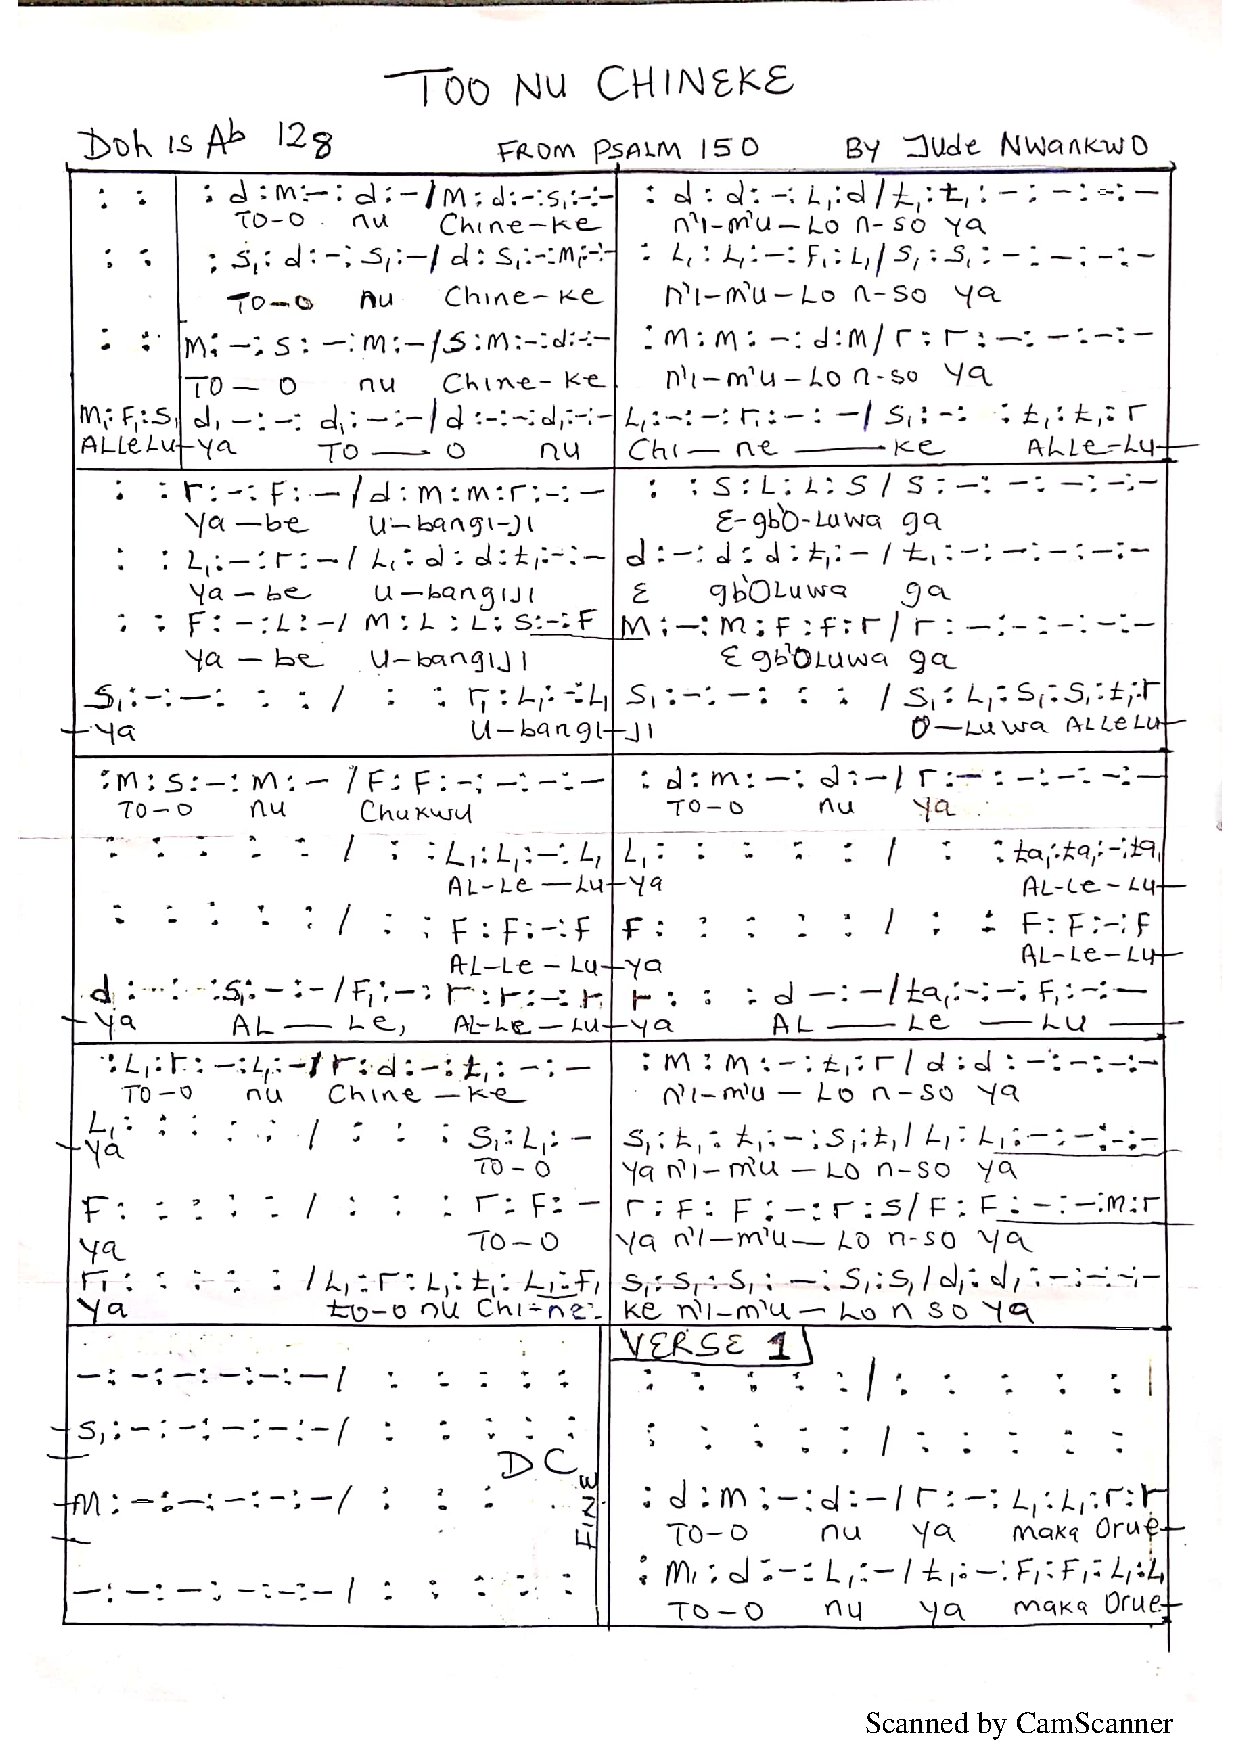 TOO NU CHINEKE
Doh is Ab 128 FROM PSALM 150 BY Jude Nwankwo
: : : d : m : – : d : – / m : d : – : s, : – : – : d : d : – : L, : d / t, : t, : – : – : – : –
TO-O nu Chine-ke n'i-m'u-Lo n-so ya
: : : s, : d : – : s, : – / d : s, : – : m, : – : – : L, : L, : – : F, : L, / s, : s, : – : – : – : –
TO-O nu Chine-ke n'i-m'u-Lo n-so ya
: : m : – : s : – : m : – / s : m : – : d : – : – : m : m : – : d : m / r : r : – : – : – : –
TO – O nu Chine-ke n'i-m'u-Lo n-so ya
m, : F, : s, d, – : – : d, : – : – / d : – : – : d, : – : – L, : – : – : r, : – : – / s, : – : : t, : t, : r
ALLeLu-ya TO — O nu Chi — ne — ke ALLe-Lu-
: : r : – : F : – / d : m : m : r : – : – : : s : L : L : s / s : – : – : – : – : –
ya – be u-bangi-ji E-gb'O-Luwa ga
: : L, : – : r : – / L, : d : d : t, : – : – d : – : d : d : t, : – / t, : – : – : – : – : –
ya – be u-bangiji E gb'OLuwa ga
: : F : – : L : – / m : L : L : s : – : F m : – : m : F : F : r / r : – : – : – : – : –
ya – be u-bangiji E gb'OLuwa ga
s, : – : – : : : / : : r, : L, : – : L, s, : – : – : : : / s, : L, : s, : s, : t, : r
ya u-bangi-ji O-Luwa ALLeLu-
: m : s : – : m : – / F : F : – : – : – : – : d : m : – : d : – / r : – : – : – : – : –
TO-O nu Chukwu TO-O nu ya
: : : : : / : : : L, : L, : – : L, L, : : : : : / : : ta, : ta, : – : ta,
AL-Le – Lu-ya AL-Le-Lu-
: : : : : / : : F : F : – : F F : : : : : / : : F : F : – : F
AL-Le-Lu-ya AL-Le-Lu-
d : – : – : s, : – : – / F, : – : r : r : – : r r : : : d – : – / ta, : – : – : F, : – : –
ya AL — Le, AL-Le – Lu-ya AL — Le — Lu —
: L, : r : – : L, : – / r : d : – : t, : – : – : m : m : – : t, : r / d : d : – : – : – : –
TO-O nu Chine – ke n'i-m'u – Lo n-so ya
L, : : : : : / : : : s, : L, : – s, : t, : t, : – : s, : t, / L, : L, : – : – : – : –
ya TO-O ya n'i-m'u – Lo n-so ya
F : : : : : / : : : r : F : – r : F : F : – : r : s / F : F : – : – : m : r
ya TO-O ya n'i-m'u – Lo n-so ya
r, : : : : : / L, : r : L, : t, : L, : F, s, : s, : s, : – : s, : s, / d, : d, : – : – : – : –
ya to-o nu Chi-ne- ke n'i-m'u – Lo n so ya
VERSE 1
– : – : – : – : – : – / : : : : : : : : : : / : : : : :
s, : – : – : – : – : – / : : : : : : : : : : / : : : : :
DC
FINE
m : – : – : – : – : – / : : : : d : m : – : d : – / r : – : L, : L, : r : r
TO-O nu ya maka Orue-
– : – : – : – : – : – / : : : : : : m, : d : – : L, : – / t, : – : F, : F, : L, : L,
TO-O nu ya maka Orue-
Scanned by CamScanner